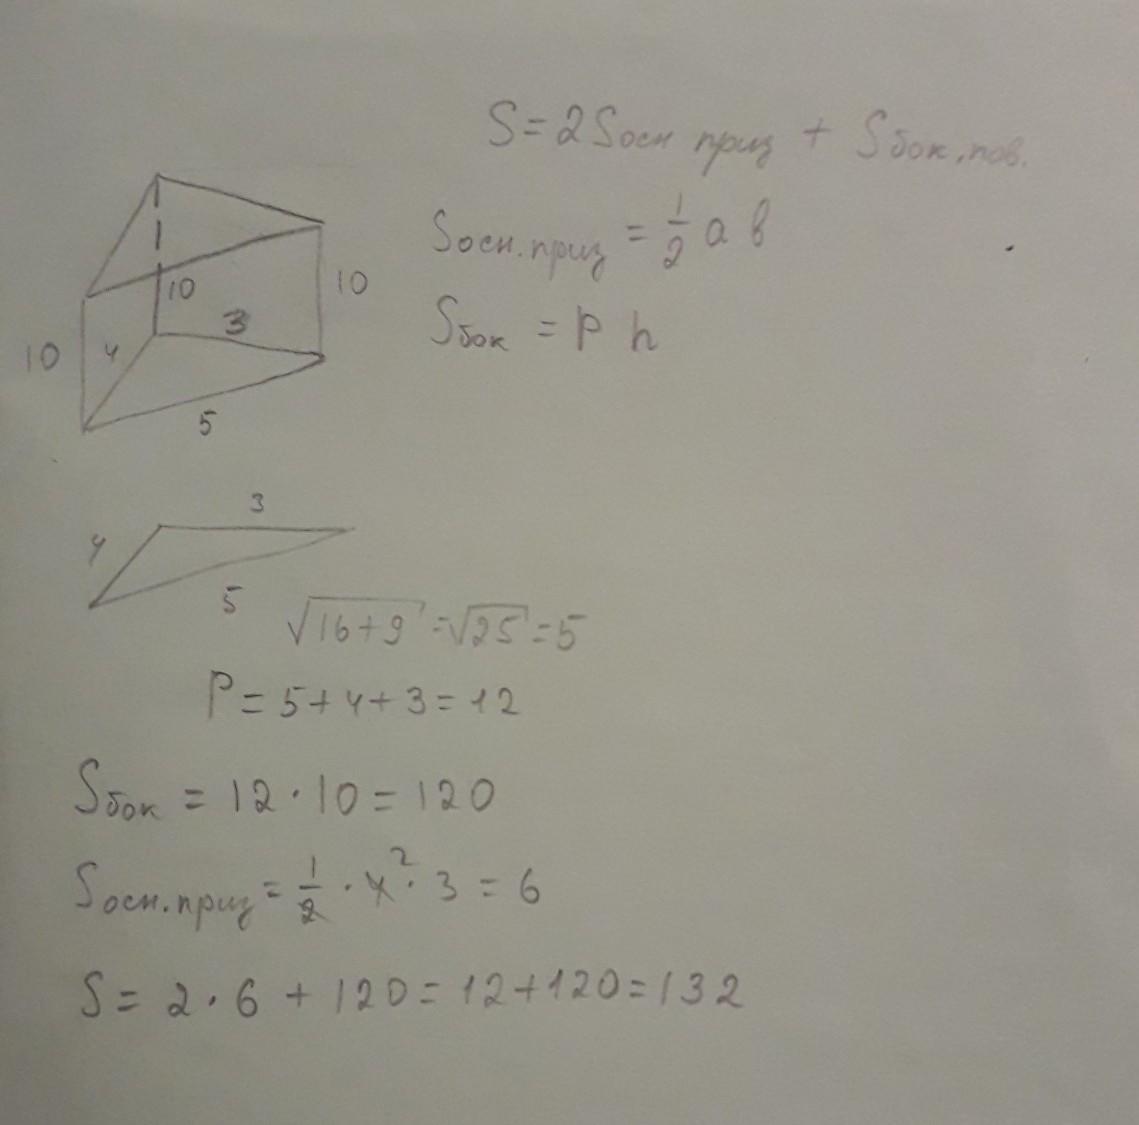 S = 2 Sосн приз + Sбок.пов.
Sосн.приз = 1/2 a b
Sбок = P h
10
10
10
4
3
5
3
4
5
√16+9 = √25 = 5
P = 5 + 4 + 3 = 12
Sбок = 12 · 10 = 120
Sосн.приз = 1/2 · 4² · 3 = 6
S = 2 · 6 + 120 = 12 + 120 = 132